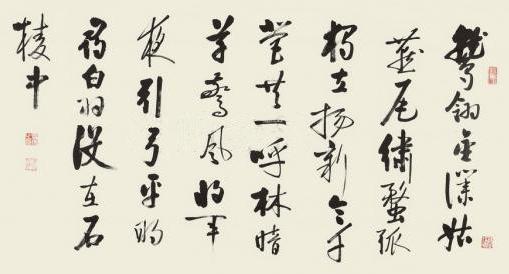 鷲翎金僕姑
燕尾繡蝥弧
獨立揚新令千
營共一呼林暗
草驚風將軍
夜引弓平明
尋白羽沒在石
棱中